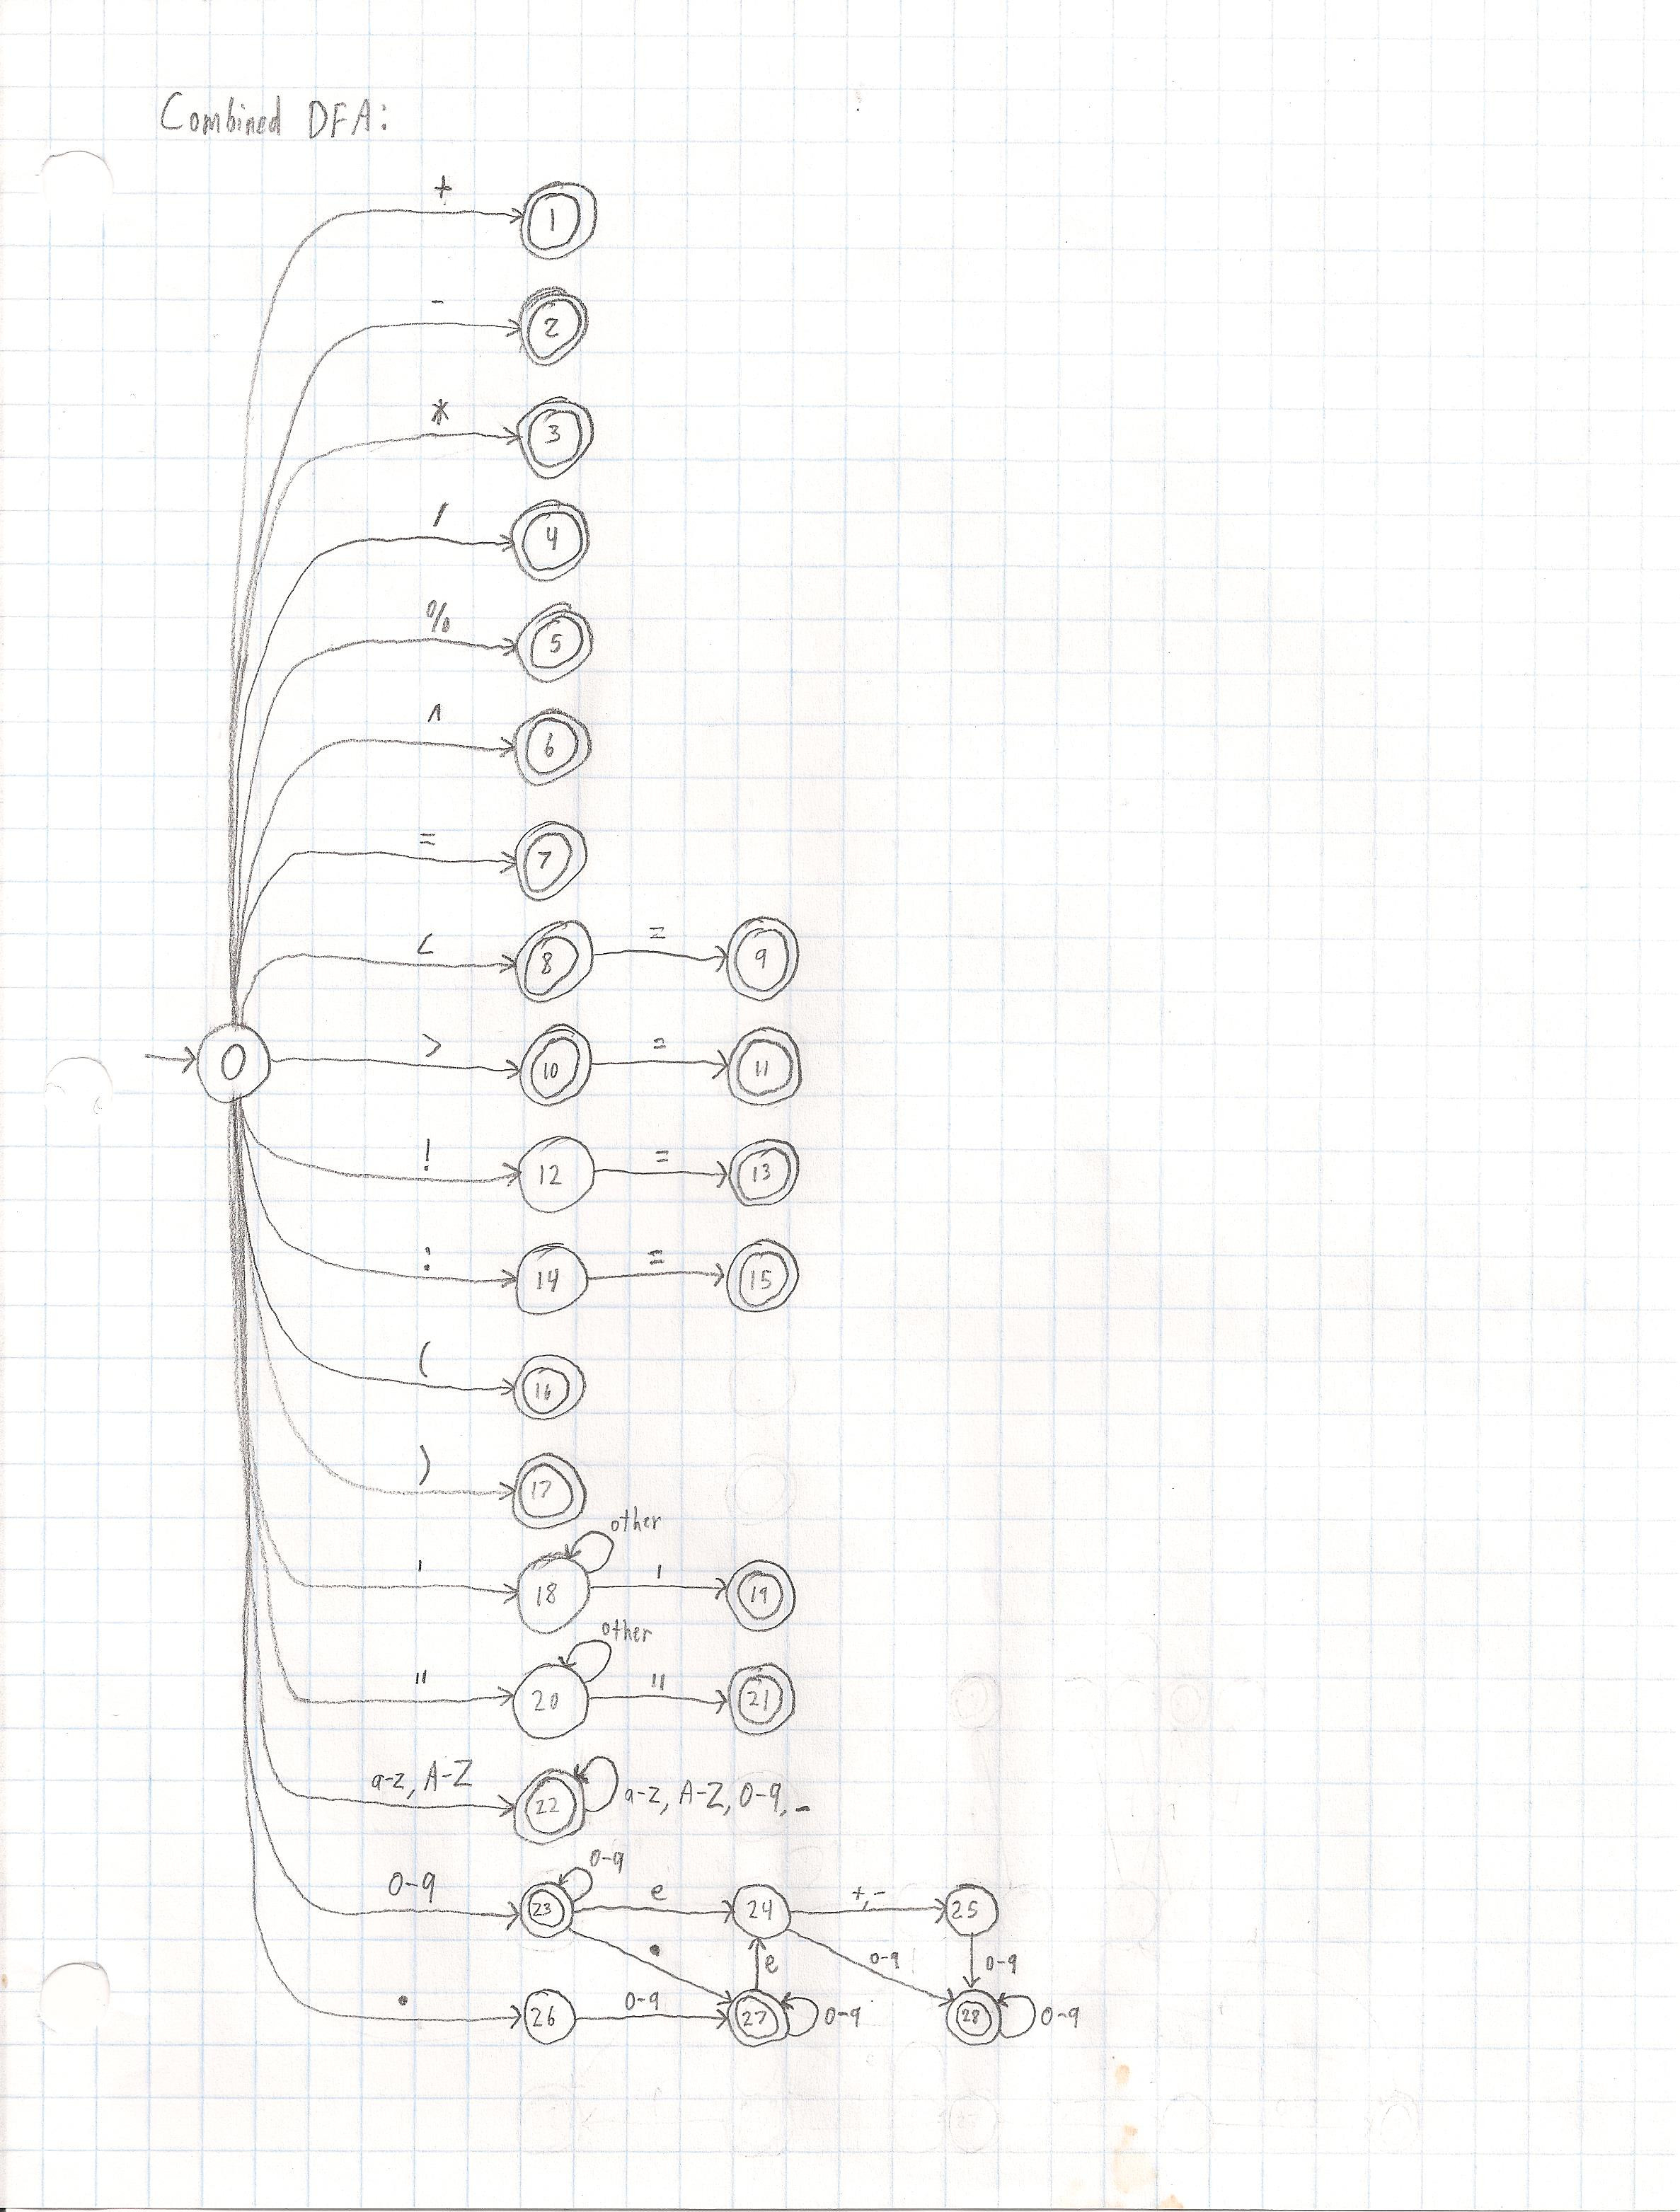 Combined DFA:
+
1
-
2
*
3
/
4
%
5
^
6
=
7
< =
8 9
> =
0 10 11
! =
12 13
: =
14 15
(
16
)
17
other
' '
18 19
other
" "
20 21
a-z, A-Z
22 a-z, A-Z, 0-9, _
0-9
0-9 e +,-
23 24 25
. e 0-9 0-9
. 0-9
26 27 0-9 28 0-9